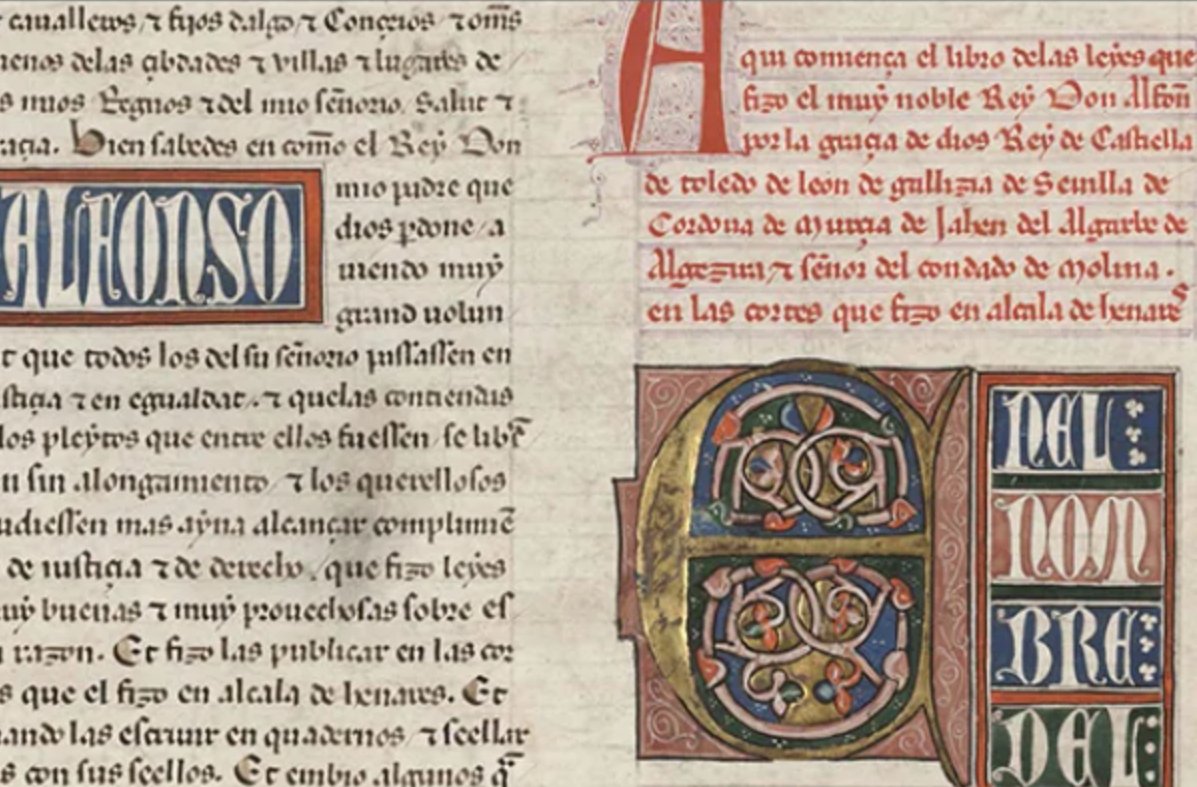 caualleros ⁊ fijos dalgo ⁊ Conçeios ⁊ om̃s
delas çibdades ⁊ villas ⁊ lugares de
mios Regnos ⁊ del mio señorio. Salut ⁊
Bien sabedes en com̃o el Rey Don
ALFONSO
mio padre que
dios ꝑdone / a
uiendo muy
grand uolun
que todos los del su señorio passassen en
⁊ en egualdat. ⁊ quelas contiendas
los pleytos que entre ellos fuessen / se libr̃
sin alongamiento / ⁊ los querellosos
mas ayna alcançar complimiẽ
de iustiçia ⁊ de derecho / que fizo leyes
buenas ⁊ muy prouechosas sobre es
razon. Et fizo las publicar en las cor
que el fizo en alcala de henares. Et
las escriuir en quadernos ⁊ seellar
con sus seellos. Et enbio algunos q̃
A
qui comiença el libro delas leyes que
fizo el muy noble Rey Don Alfoñ
por la graçia de dios Rey de Castiella
de toledo de leon de gallizia de Seuilla de
Cordoua de Murçia de Jahen del Algarbe de
Algezira / ⁊ señor del condado de Molina.
en las cortes que fizo en alcala de henares
E
NEL
NOM
BRE
DEL